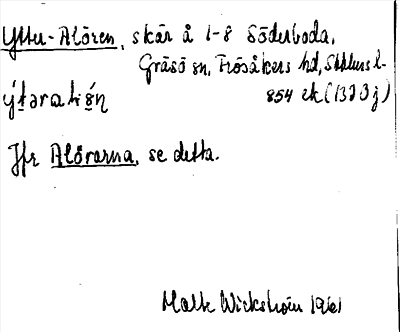 Ytter-Alören, skär å 1-8 Söderboda,
Gräsö sn, Frösåkers hd, Sthlms l.
854 ek (13I3j)
Jfr Alörarna, se detta.
Malte Wickström 1961